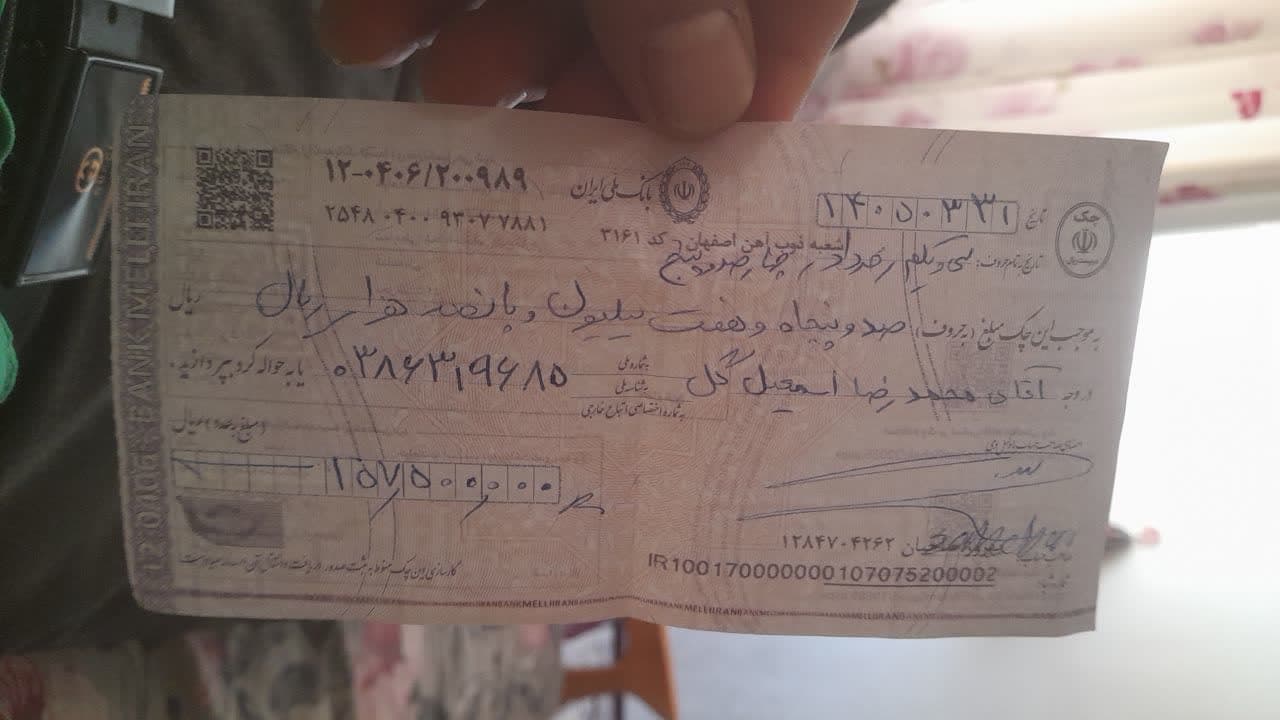 BANK MELLI IRAN
۱۲-۰۴۰۶/۲۰۰۹۸۹
۲۵۴۸ ۰۴۰۰ ۹۳۰۷۷۸۸۱
بانک ملی ایران
شعبه ذوب آهن اصفهان کد ۳۱۶۱
چک
تاریخ ۱۴۰۵۰۳۳۱
تاریخ به تمام حروف: سی و یکم خرداد چهارصد و پنج
به موجب این چک مبلغ (بحروف) صد و پنجاه و هفت میلیون و پانصد هزار ریال ریال
در وجه آقای محمد رضا اسمعیل گل
به شماره ملی
به شناسه ملی
به شماره اختصاصی اتباع خارجی
۰۳۸۶۳۱۹۶۸۵
یا به حواله کرد بپردازید.
(مبلغ به عدد) ریال
۱۵۷۵۰۰۰۰۰
۱۲۸۴۷۰۴۲۶۲
IR100170000000107075200002
کارسازی این چک منوط به ثبت صدور، دریافت و انتقال آن در سامانه صیاد است